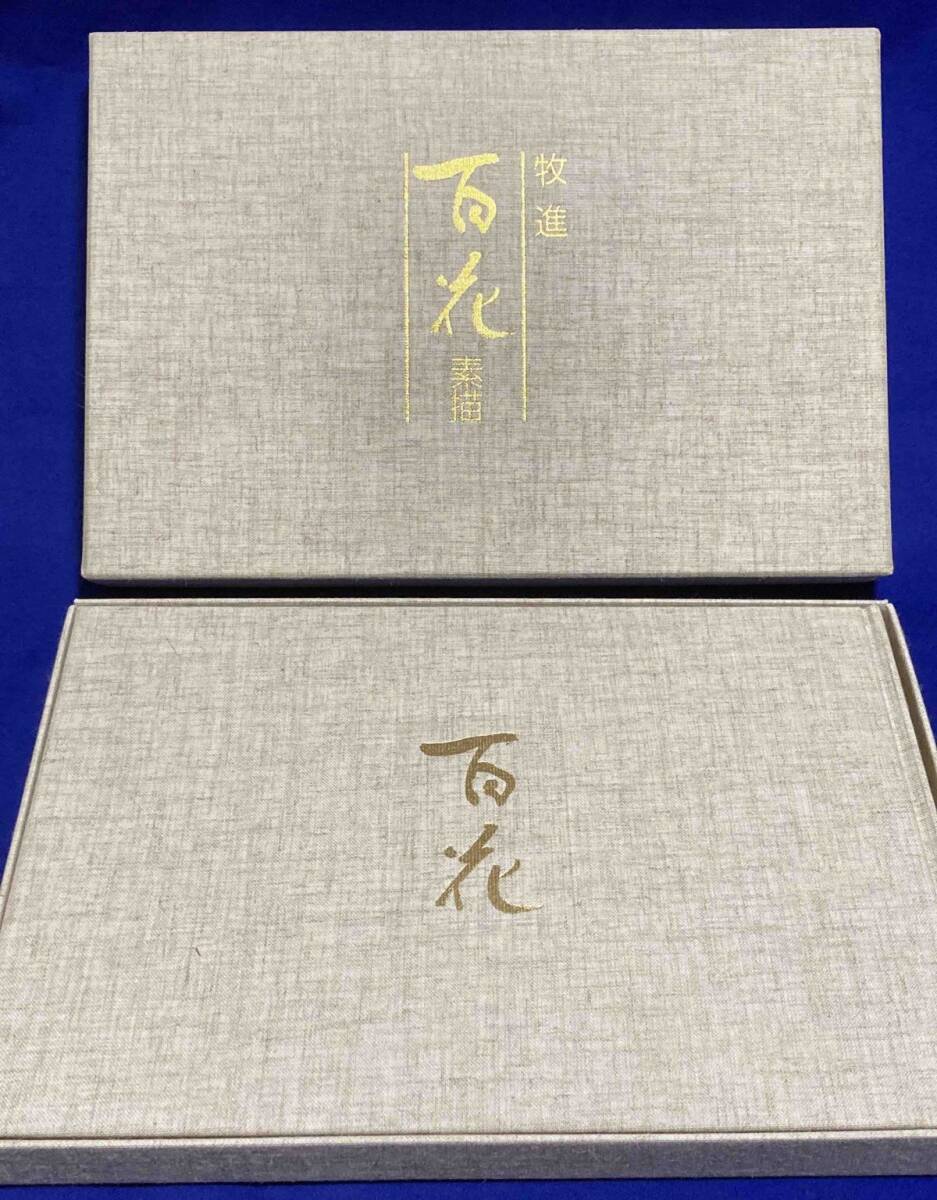 牧進
百花
素描
百花